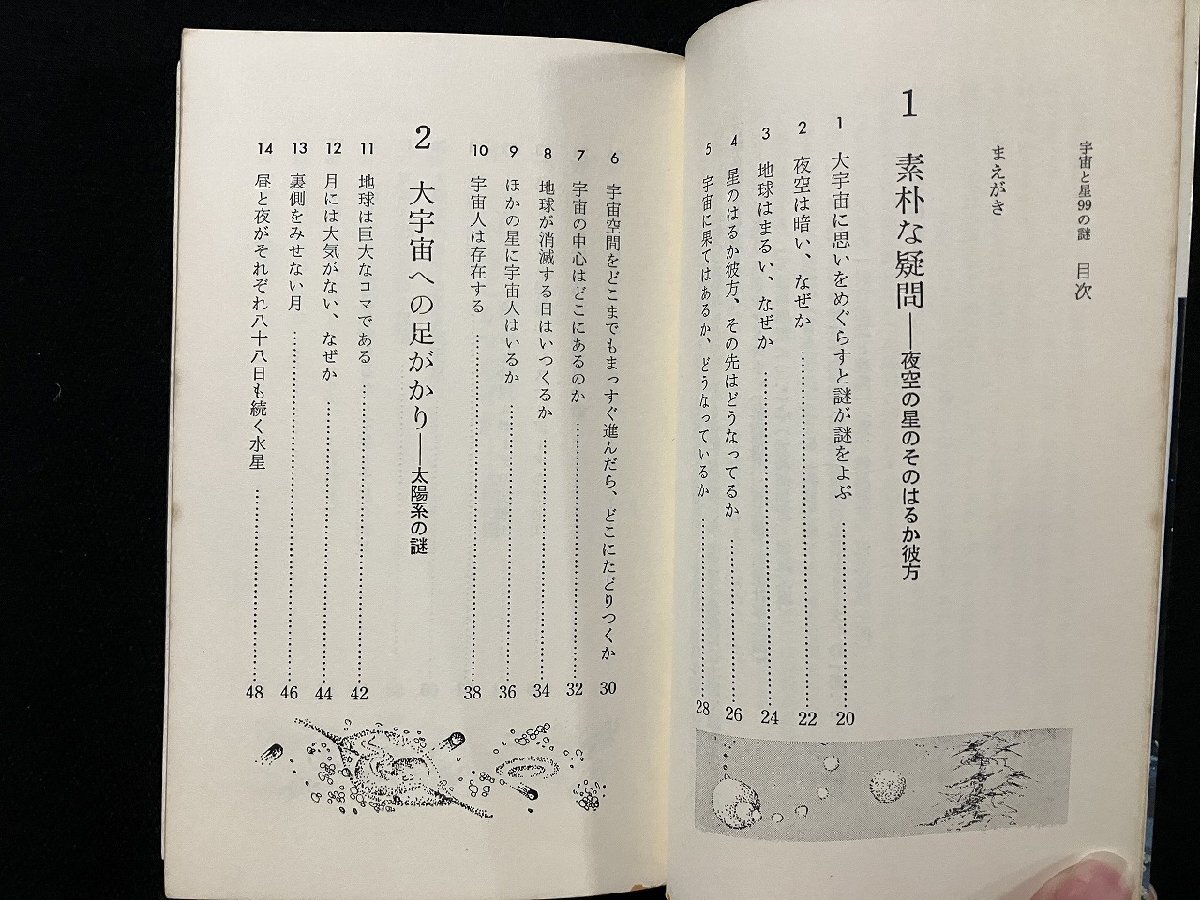 宇宙と星99の謎　目次
まえがき
1　素朴な疑問──夜空の星のそのはるか彼方
1　大宇宙に思いをめぐらすと謎が謎をよぶ……20
2　夜空は暗い、なぜか……22
3　地球はまるい、なぜか……24
4　星のはるか彼方、その先はどうなってるか……26
5　宇宙に果てはあるか、どうなっているか……28
6　宇宙空間をどこまでもまっすぐ進んだら、どこにたどりつくか　30
7　宇宙の中心はどこにあるのか……32
8　地球が消滅する日はいつくるか……34
9　ほかの星に宇宙人はいるか……36
10　宇宙人は存在する……38
2　大宇宙への足がかり──太陽系の謎
11　地球は巨大なコマである……42
12　月には大気がない、なぜか……44
13　裏側をみせない月……46
14　昼と夜がそれぞれ八十八日も続く水星……48